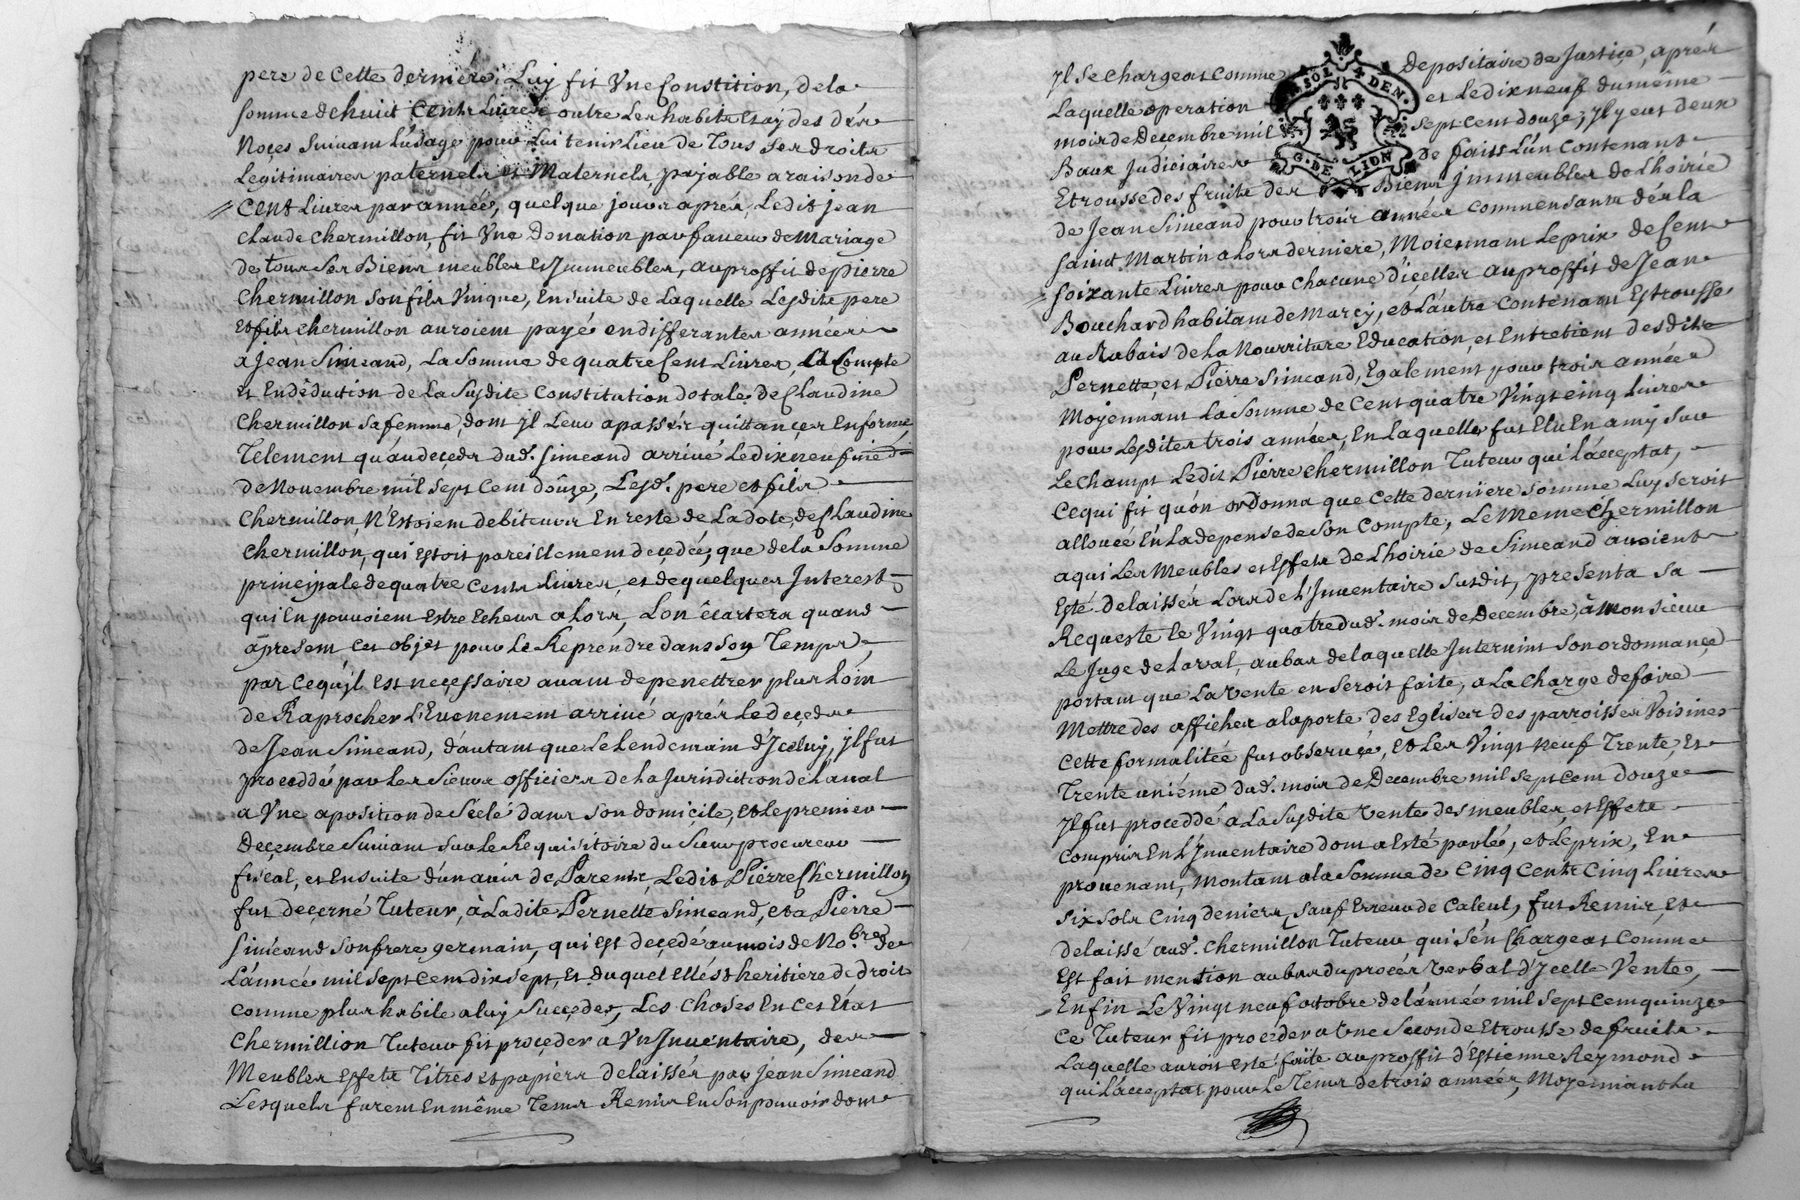 pere de Cette derniere, Luy fit Vne Constition, de la
somme de huit Cents Livres outre Les habits Et
Noces Suivant L'usage pour Lui tenir Lieu de Tous Ses droits
Legitimaires paternels et Maternels, payable a raison de
Cent Livres par année, quelque jours aprés, Ledit jean
Claude Chermillon, fit Vne Donation par faveur de Mariage
de tous Ses Biens meubles Et Immeubles, au proffit de pierre
Chermillon Son fils Vnique, Ensuite de Laquelle Lesdits pere
et fils Chermillon auroient payé en differantes années
a Jean Simeand, La Somme de quatre Cent Livres, a Compte
et En déduction de La Susdite Constitution dotale de Claudine
Chermillon Sa femme, dont jl Leur a passée quittances En forme,
Telement qu'au decedz dud. Simeand arrivé Le dix neufiéme
de Novembre mil Sept Cent douze, Lesd. pere et fils
Chermillon, N'Estoient debiteurs En reste de La dote de Claudine
Chermillon, qui Estoit pareillement decedée, que de la Somme
principale de quatre Cents Livres, et de quelques Interest
qui En pouvoient Estre Echeus a Lors, Lon écartera quand
àpresent cet objet pour Le Reprendre dans Son Temps,
par Cequ'jl Est necessaire avant de penettrer plus Loin
de Raprocher L'Evenement arrivé aprés Le decedz
de Jean Simeand, d'autant que Le Lendemain d'Jceluy, jl fut
proceddé par Les Sieurs officiers de La Jurisdiction de Laval
a Vne aposition de Séelé dans Son domicile, et Le premier
Decembre Suivant Sur Le Requisitoire du Sieur procureur
fiscal, et Ensuite d'un avis de Parents, Ledit Pierre Chermillon
fut decerné Tuteur, à Ladite Pernette Simeand, et a Pierre
Siméand Son frere germain, qui Est decedé au mois de No.bre de
L'année mil Sept Cent dix Sept, Et duquel Elle Est heritiere de droit
comme plus habile a luy Succeder, Les Choses En cet Etat
Chermillion Tuteur fit proceder a Vn Jnventaire, des
Meubles Effets Titres et papiers delaissés par jean Simeand
Lesquels furent En même Tems Remis En Son pouvoir dont
Jl Se Chargeat Comme depositaire de Justice, aprés
Laquelle operation et Le dix neuf du même
mois de Decembre mil Sept Cent douze, Jl y eut deux
Baux Judiciaires de faits L'un Contenant
Etrousse des fruits des Biens Jmmeubles de Lhoirie
de Jean Simeand pour trois années commensants dés la
Saint Martin a Lors derniere, Moiennant Le prix de Cent
Soixante Livres pour Chacune d'icelles au proffit de Jean
Bouchard habitant de Marcy, et L'autre Contenant Estrousse
au Rabais de La Nourriture Education, et Entretient desdits
Pernette, et Pierre Simeand, Egalement pour trois années
Moyennant La Somme de Cent quatre Vingt cinq Livres
pour Lesdites trois années, En Laquelle fut Elu En amy Sur
Le Champt Ledit Pierre Chermillon Tuteur qui L'acceptat,
Cequi fit qu'on ordonna que Cette derniere Somme Luy Seroit
allouée En La depense de Son Compte, Le Meme Chermillon
aqui Les Meubles et Effets de Lhoirie de Simeand avoient
Esté delaissés Lors de L'Jnventaire Susdit, presenta Sa
Requeste le Vingt quatre dud. mois de Decembre, à Monsieur
Le Juge de Laval, au bas de laquelle Intervint Son ordonnance
portant que La Vente en Seroit faite, a La Charge de faire
Mettre des affiches a la porte des Eglises des parroisses Voisines
Cette formalitée fut observée, et Les Vingt neuf Trente, Et
Trente uniéme dud. mois de Decembre mil Sept Cent douze
Jl fut proceddé a La Susdite Vente des meubles, et Effets
Compris En L'Jnventaire dont a Esté parlé, et Le prix, En
provenant, montant a La Somme de Cinq Cents Cinq Livres
Six Sols Cinq deniers, Sauf Erreur de Calcul, fut Remis, Et
delaissé aud. Chermillon Tuteur qui S'en Chargeat Comme
Est fait mention au bas du procés Verbal d'Jcelle Vente,
Enfin Le Vingt neuf octobre de L'année mil Sept Cent quinze
Ce Tuteur fit proceder a Vne Seconde Etrousse de fruits
Laquelle auroit Esté faite au proffit d'Estienne Reymond
qui L'acceptat pour Le Tems de trois années, Moyennant La
SOL
4 DEN.
G. DE LION